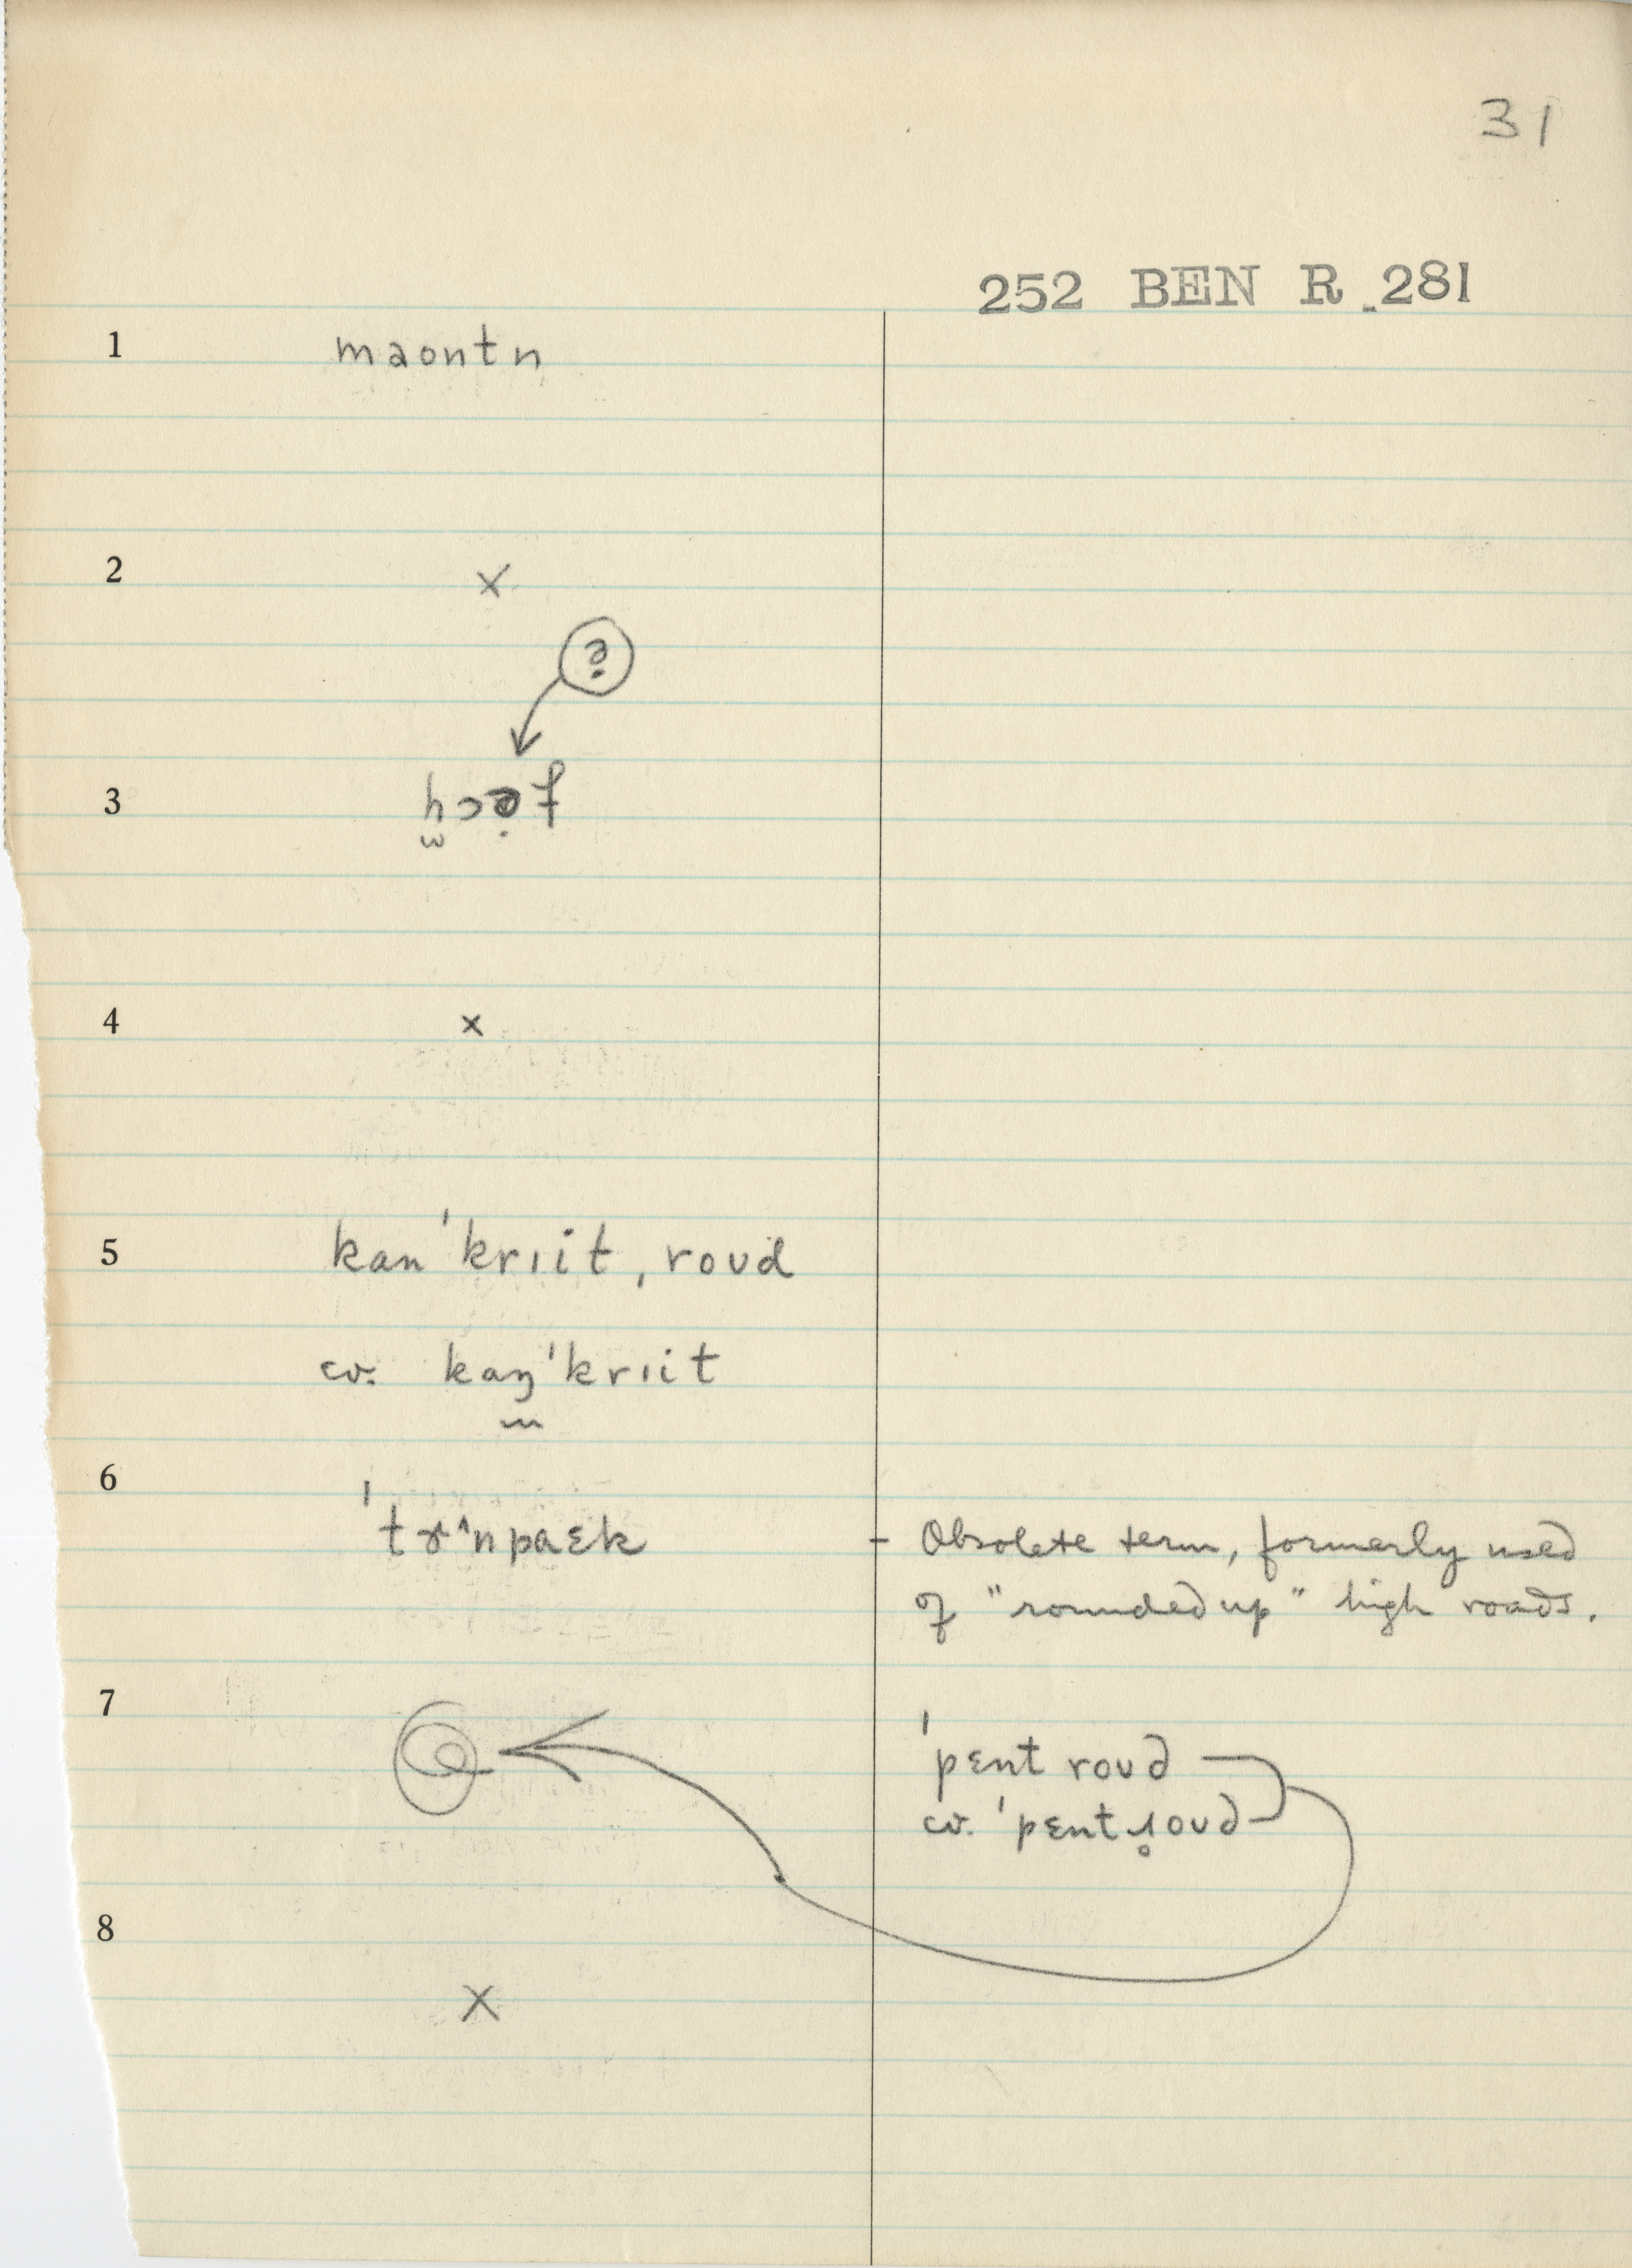 31
252 BEN R 281
1 maontn
2 ×
3
4 ×
5 kan'krɪit, roʊd
cv. kaŋ'krɪit
6 'tɚ^npaɛk - Obsolete term, formerly used
of "rounded up" high roads.
7 'pɛnt roʊd
cv. 'pɛnt ɹ̥oʊd
8 ×